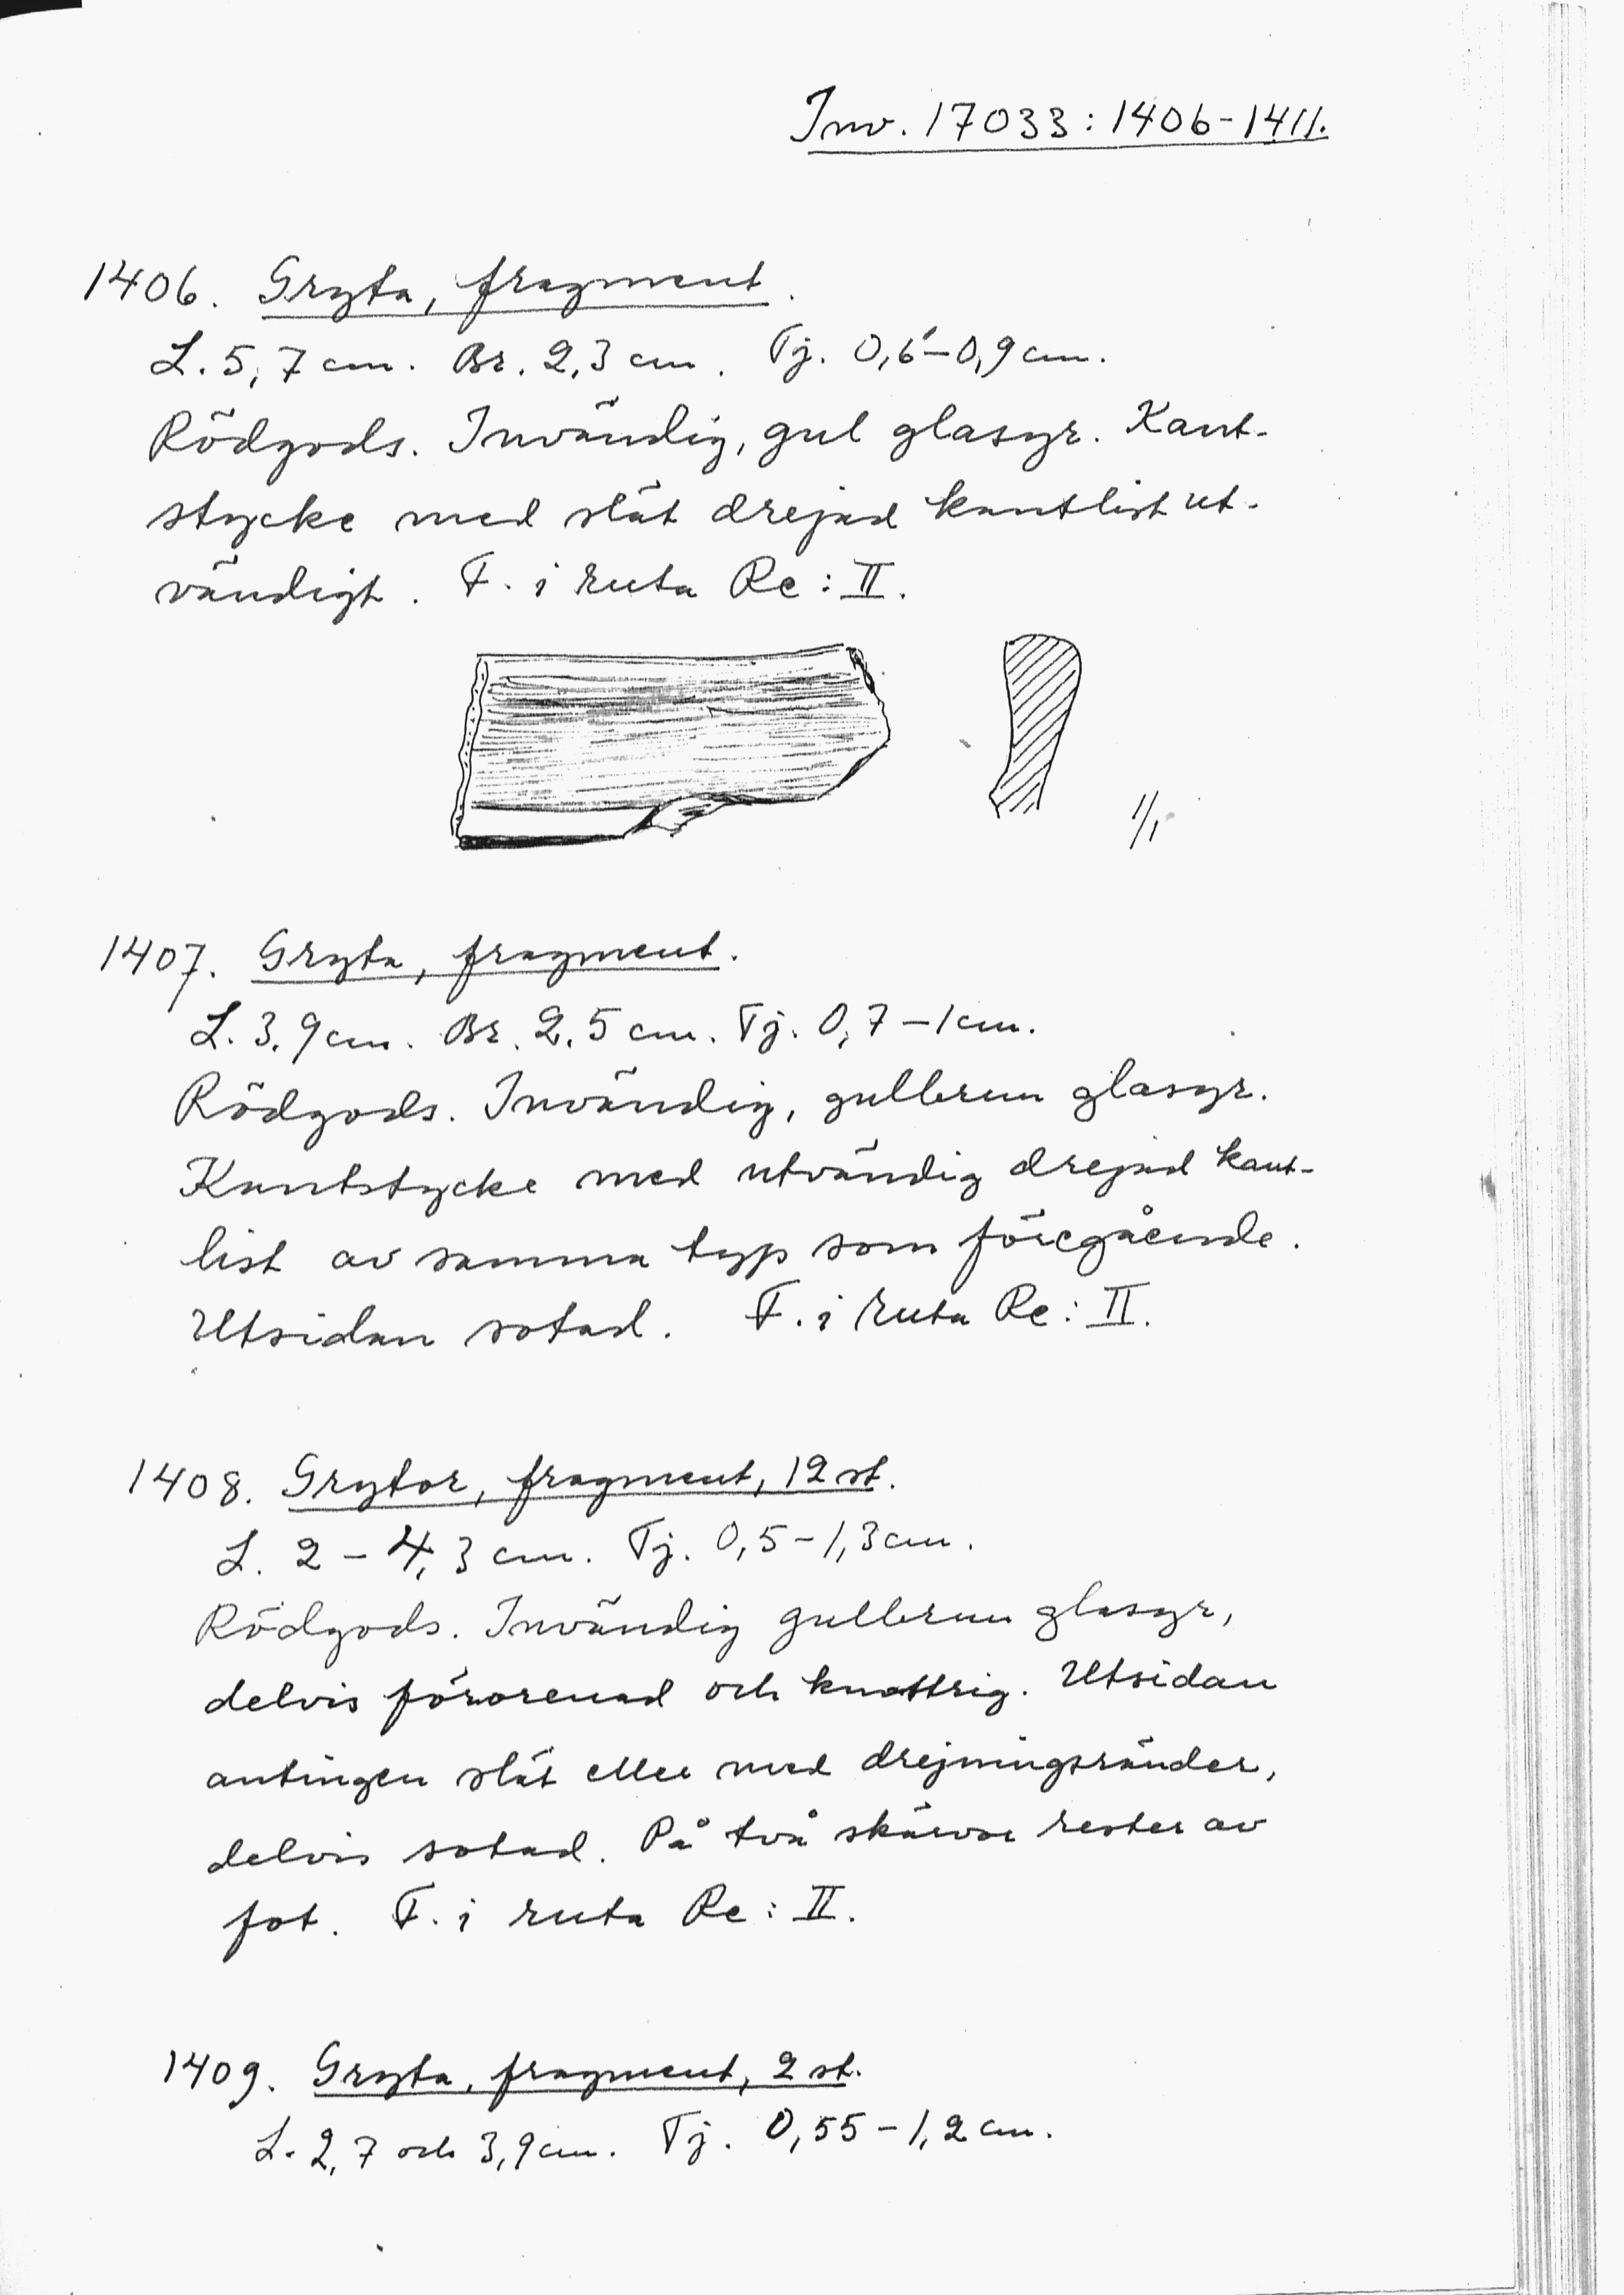 Inv. 17033:1406-1411.
1406. Gryta, fragment.
L. 5,7 cm. Br. 2,3 cm. Tj. 0,6-0,9 cm.
Rödgods. Invändig, gul glasyr. Kant-
stycke med slät drejad kantlist ut-
vändigt. F. i ruta Re: II.
1/1
1407. Gryta, fragment.
L. 3,9 cm. Br. 2,5 cm. Tj. 0,7-1 cm.
Rödgods. Invändig, gulbrun glasyr.
Kantstycke med utvändig drejad kant-
list av samma typ som föregående.
Utsidan sotad. F. i ruta Re: II.
1408. Grytor, fragment, 12 st.
L. 2-4,3 cm. Tj. 0,5-1,3 cm.
Rödgods. Invändig gulbrun glasyr,
delvis förorenad och knottrig. Utsidan
antingen slät eller med drejningsränder,
delvis sotad. På två skärvor rester av
fot. F. i ruta Re: II.
1409. Gryta, fragment, 2 st.
L. 2,7 och 3,9 cm. Tj. 0,55-1,2 cm.